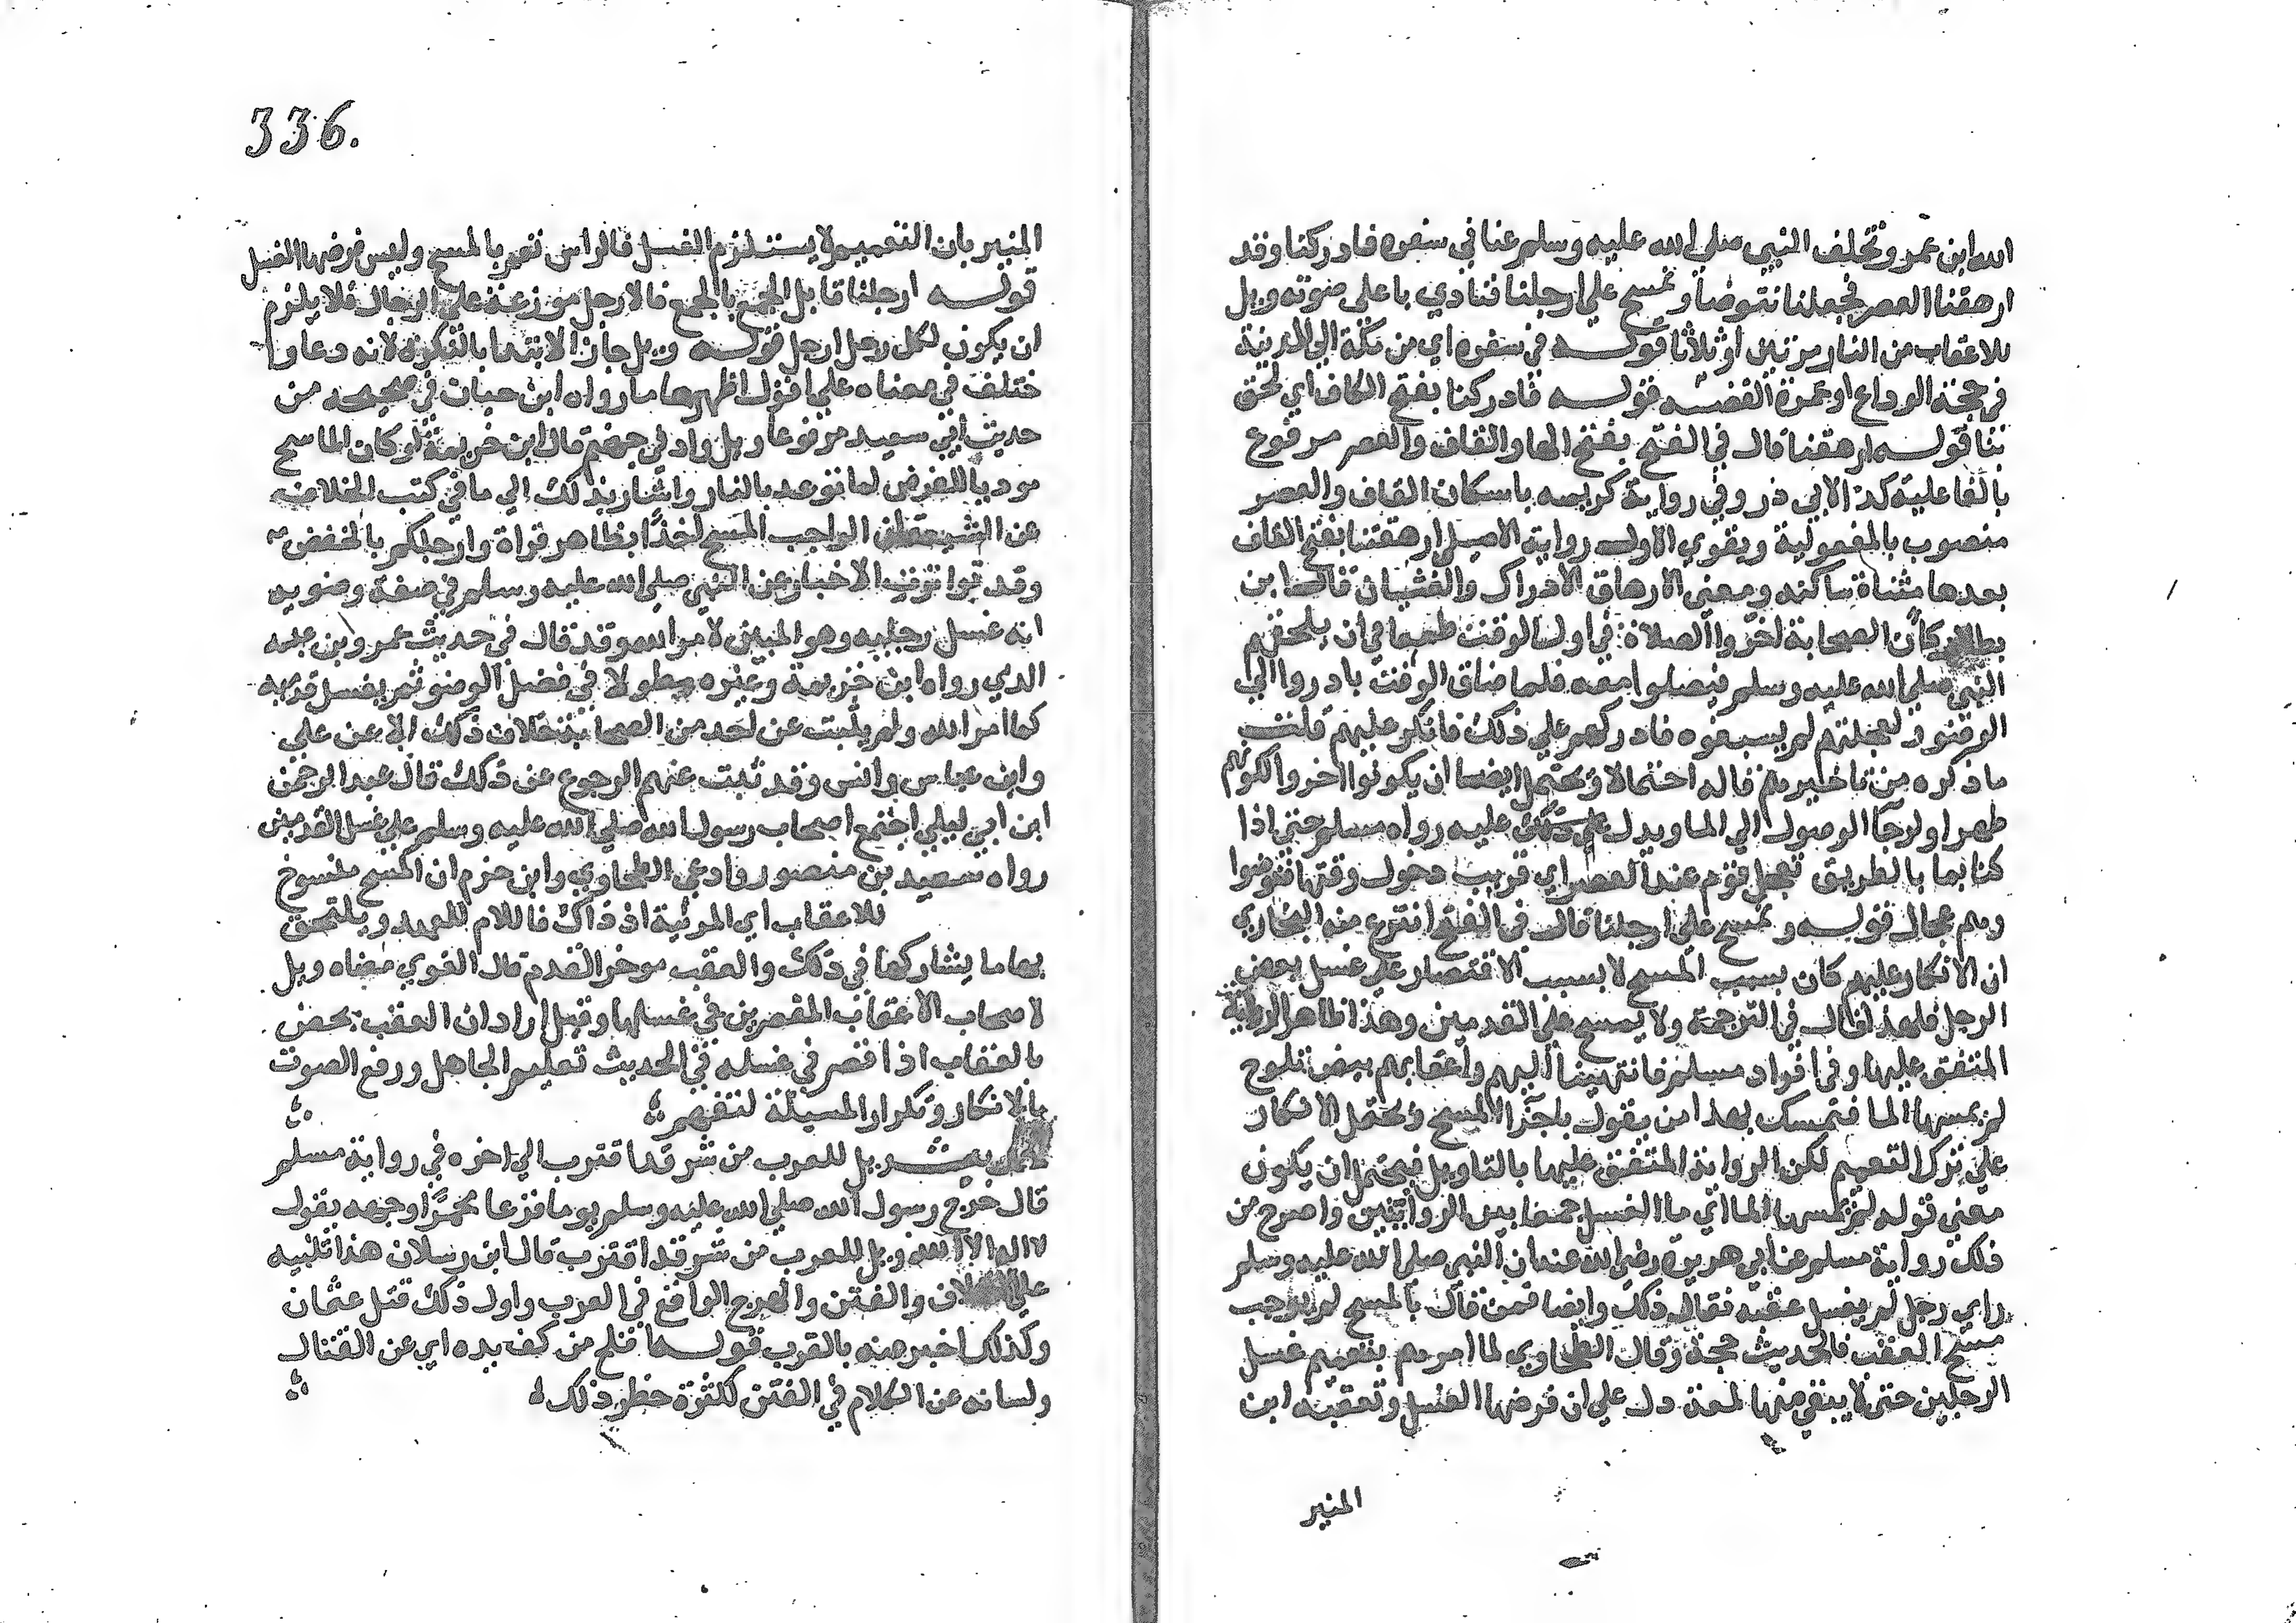 الله ابن عمرو تخلف النبي صلى الله عليه وسلم عنا في سفره فادركنا وقد
ارهقنا العصر فجعلنا نتوضأ ونمسح على ارجلنا فنادي باعلى صوته ويل
للاعقاب من النار مرتين او ثلاثا قوله في سفره اي من مكة الى المدينة
في حجة الوداع او عمرة القضيه قوله فادركنا بفتح الكاف اي لحق
بنا قوله ارهقنا قال في الفتح بفتح الها والقاف والعصر مرفوع
بالفاعلية كذا لابي ذر وفي رواية كريمه باسكان القاف والعصر
منصوب بالمفعولية ويقوي الاول رواية الاصيلي ارهقتنا بفتح القاف
بعدها مثناة ساكنه ومعنى الارهاق الادراك والغشيان قال ابن
بطال كان الصحابة اخروا الصلاة في اول الوقت طمعا في ان يلحقهم
النبي صلى الله عليه وسلم فيصلوا معه فلما ضاق الوقت بادروا الى
الوضوء ولعجلتهم لم يسبغوه فادركهم على ذلك فانكر عليهم قلت
ما ذكره من تاخيرهم قاله احتمالا ويحتمل ايضا ان يكونوا اخروا لكونهم
طهرا ولرجا الوصول الى الما ويدل عليه رواه مسلم حتى اذا
كنا بما بالطريق تعجل قوم عند العصر اي قريب دخول وقتها فتوضوا
وهم عجال قوله ونمسح على ارجلنا قال في الفتح انتزع منه البخاري
ان الانكار عليهم كان بسبب المسح لا بسبب الاقتصار على غسل بعض
الرجل فلهذا قال في الترجمة ولا يمسح على القدمين وهذا ظاهر الرواية
المتفق عليها وفي افراد مسلم فانتهينا اليهم واعقابهم بيض تلوح
لم يمسها الما فتمسك بهذا من يقول باجزا المسح ويحتمل الانكار
على ترك التعميم لكن الرواية المتفق عليها بالتاويل فيحتمل ان يكون
معنى قوله لم يمسها الما اي ما الغسل جمعا بين الروايتين واصرح من
ذلك رواية مسلم عن ابي هريرة رضي الله عنه ان النبي صلى الله عليه وسلم
راي رجل لم يغسل عقبه فقال ذلك وايضا فمن قال بالمسح لم يوجب
مسح العقب فالحديث حجة وقال الطحاوي لما امرهم بتعميم غسل
الرجلين حتى لا يبقي منها لمعة دل على ان فرضها الغسل وتعقبه ابن
المنير
336.
المنير بان التعميم لا يستلزم الغسل فالراس تعم بالمسح وليس فرضها الغسل
قوله ارجلنا قابل الجمع بالجمع فالارجل موزعة على الرجال فلا يلزم
ان يكون لكل رجل ارجل قوله ويل جاز الابتدا بالنكره لانه دعا وا
ختلف في معناه على اقوال اظهرها ما رواه ابن حبان في صحيحه من
حديث ابي سعيد مرفوعا ويل واد في جهنم قال ابن خزيمة لو كان الماسح
موديا للفرض لما توعد بالنار واشار بذلك الى ما في كتب الخلاف
عن الشيعة ان الواجب المسح اخذا بظاهر قراة وارجلكم بالخفض
وقد تواترت الاخبار عن النبي صلى الله عليه وسلم في صفة وضويه
انه غسل رجليه وهو المبين لامر الله وقد قال في حديث عمرو بن عبسه
الذي رواه ابن خزيمة وغيره مطولا في فضل الوضو ثم يغسل قدميه
كما امر الله ولم يثبت عن احد من الصحابة خلاف ذلك الا عن علي
وابن عباس وانس وقد ثبت عنهم الرجوع عن ذلك قال عبد الرحمن
ابن ابي ليلي اجتمع اصحاب رسول الله صلى الله عليه وسلم على غسل القدمين
رواه سعيد بن منصور وادعي الطحاوي وابن حزم ان المسح منسوخ
للاعقاب اي المرئية اذ ذاك فاللام للعهد ويلتحق
بها ما يشاركها في ذلك والعقب موخر القدم قال البغوي معناه ويل
لاصحاب الاعقاب المقصرين في غسلها وقيل اراد ان العقب يخص
بالعقاب اذا قصر في غسله في الحديث تعليم الجاهل ورفع الصوت
بالانكار وتكرار المسيلة لتفهم
ويل للعرب من شر قد اقترب الى اخره في رواية مسلم
قال خرج رسول الله صلى الله عليه وسلم يوما فزعا محمرا وجهه يقول
لا اله الا الله ويل للعرب من شر قد اقترب قال ابن رسلان هذا تنبيه
على الاختلاف والفتن والهرج الواقع في العرب واول ذلك قتل عثمان
وكذلك اخبر منه بالقرب قوله افلح من كف يده اي عن القتال
ولسانه عن الكلام في الفتن لكثرة خطر ذلك